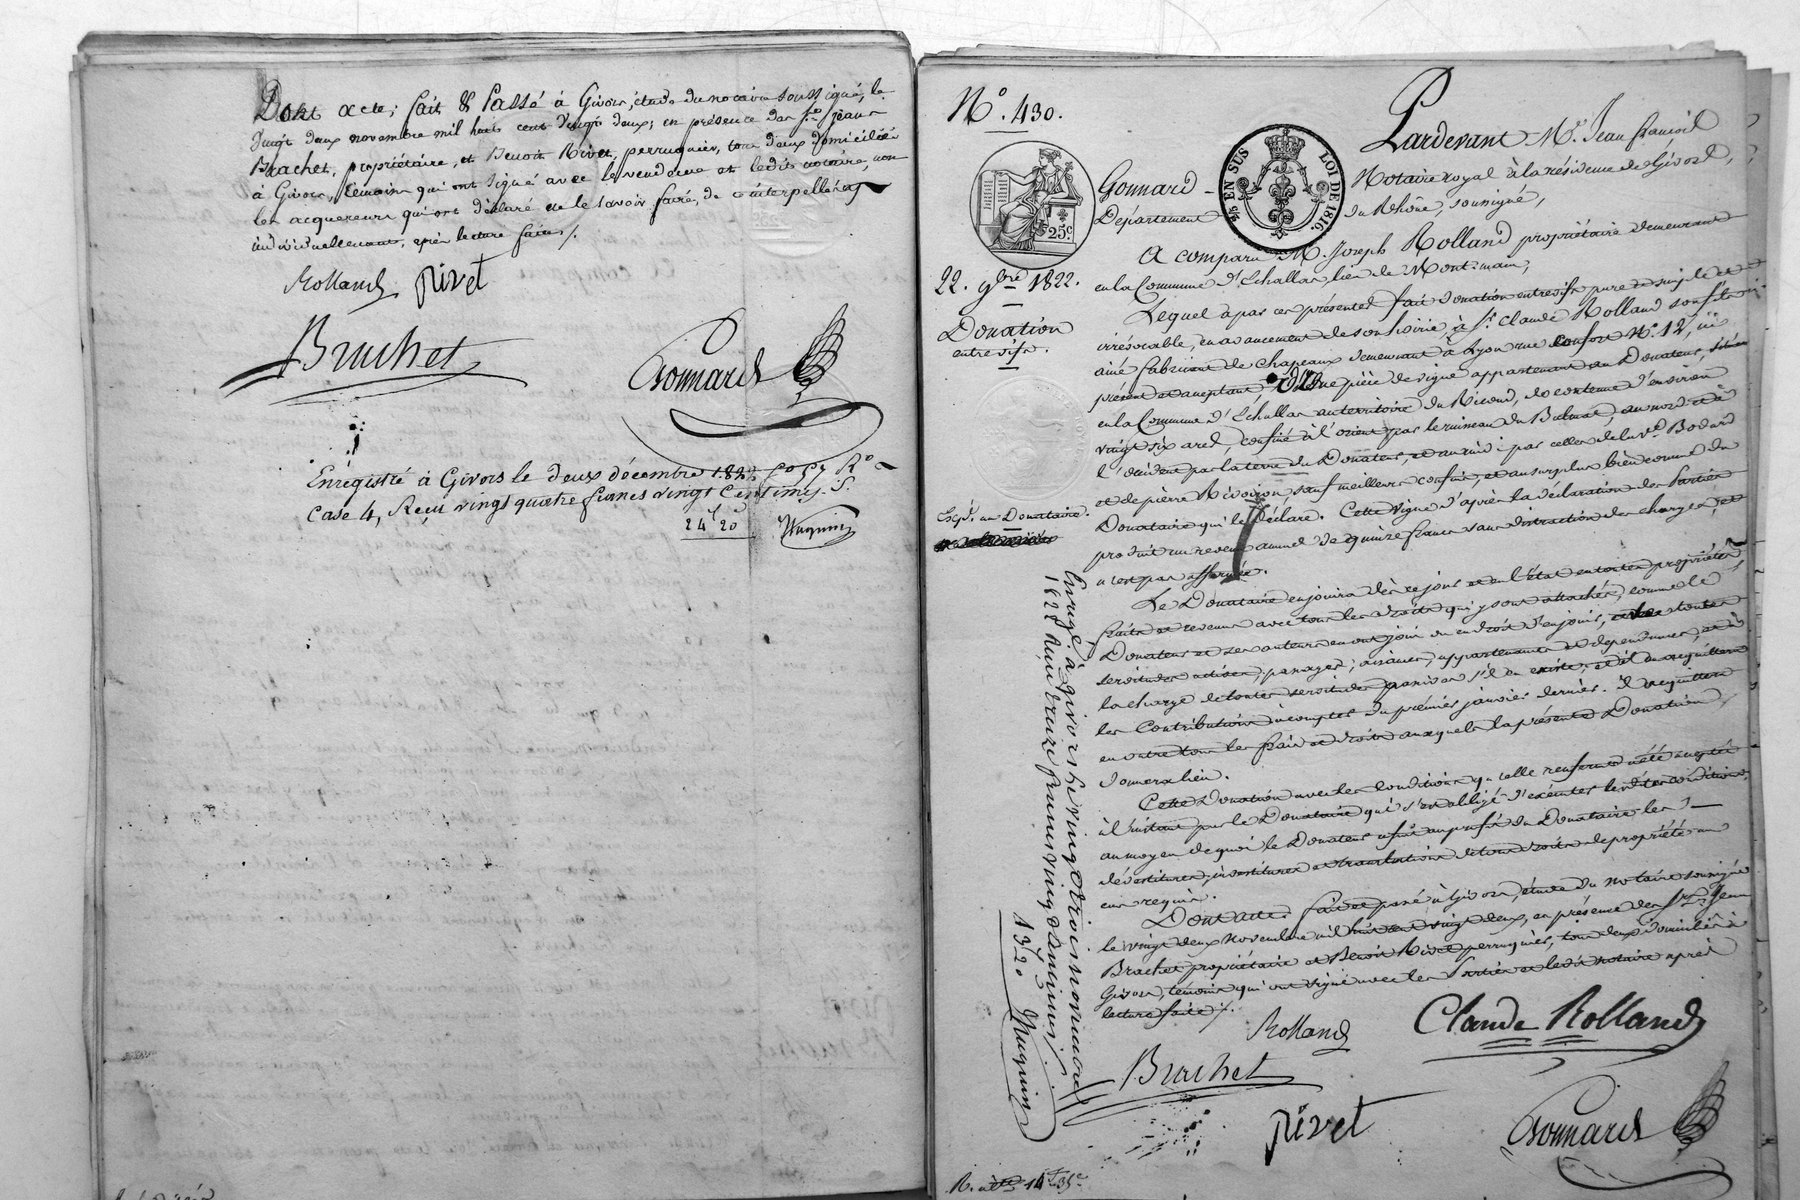 Dont acte; fait & Passé à Givors, étude du notaire soussigné, le
vingt deux novembre mil huit cent vingt deux; en présence des Srs. Jean
Brachet, propriétaire, et Benoit Rivet, perruquier, tous deux domiciliés
à Givors, témoins qui ont signé avec le vendeur et ledit notaire, non
les acquereurs qui ont déclaré ne le savoir faire, de ce interpellés
individuellement, après lecture faite /.
Rolland Rivet
Brachet Gonnard
Enregistré à Givors le deux décembre 1822 fo 57 Ro
Case 4, Reçu vingt quatre francs vingt Centimes.
24f 20 Huguin
No. 430.
25c
5/5 EN SUS LOI DE 1816.
22. 9bre 1822.
Donation
entrevifs.
Expd. au Donataire.
Pardevant Me. Jean françois
Gonnard Notaire royal à la résidence de Givors,
Département du Rhône, soussigné,
A comparu M. Joseph Rolland propriétaire demeurant
en la Commune d'Echallas lieu de Montmain,
Lequel a par ces présentes fait donation entrevifs pure et simple et
irrévocable, en avancement de son hoirie, à Sr. Claude Rolland son fils
ainé fabricant de chapeaux demeurant à Lyon rue Confort No. 12, ici
présent et acceptant, D'Une pièce de vigne appartenant au Donateur, située
en la Commune d'Echallas au territoire du Ricond, de contenue d'environ
vingt six ares, confinée à l'orient par le ruisseau du Balmat, au nord et à
l'occident par la terre du Donateur, et au midi par celles de la ve. Bodard
et de pierre Rivoiron sauf meilleurs confins, et au surplus bien connue du
Donataire qui le déclare. Cette vigne d'après la déclaration des Parties
produit un revenu annuel de quinze francs sans distraction des charges, et
n'est pas affermée.
Le Donataire en jouira dès ce jour et en l'état en toute propriété
fruits et revenus avec tous les droits qui y sont attachés, comme le
Donateur et ses auteurs en ont joui ou eu droit d'en jouir, avec toutes
servitudes actives, passages, aisances, appartenances et dépendances, et à
la charge de toutes servitudes passives s'il en existe, et d'en acquitter
les Contributions à compter du premier janvier dernier. Il acquittera
en outre tous les frais et droits auxquels la présente Donation
donnera lieu.
Cette Donation avec les conditions qu'elle renferme a été acceptée
à l'instant par le Donataire qui s'est obligé d'exécuter lesdites conditions
au moyen de quoi le Donateur a fait au profit du Donataire les
dévestitures, investitures et translations de tous droits de propriété en
cas requis.
Dont acte. fait et passé à Givors, étude du notaire soussigné
le vingt deux Novembre mil huit cent vingt deux, en présence des Srs. Jean
Brachet propriétaire et Benoit Rivet perruquier, tous deux domiciliés à
Givors, témoins qui ont signé avec les Parties et ledit notaire après
lecture faite /.
Rolland Claude Rolland
Brachet
Rivet Gonnard
Enregé. à givors le vingt trois novembre
1822 Reçu treize francs vingt Centimes.
13f 20 Huguin